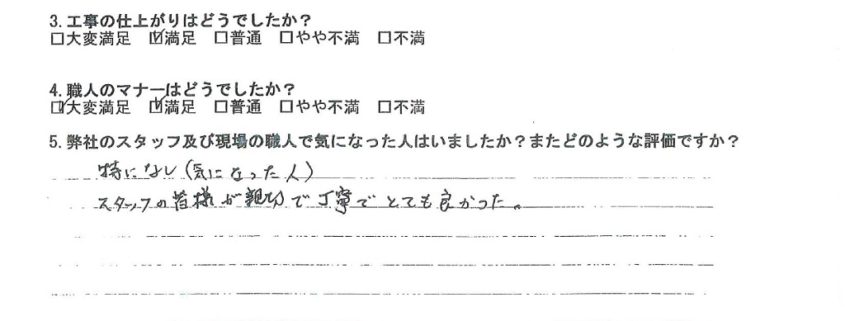 3. 工事の仕上がりはどうでしたか？
☐大変満足 ☑満足 ☐普通 ☐やや不満 ☐不満
4. 職人のマナーはどうでしたか？
☑大変満足 ☑満足 ☐普通 ☐やや不満 ☐不満
5. 弊社のスタッフ及び現場の職人で気になった人はいましたか？またどのような評価ですか？
特になし（気になった人）
スタッフの皆様が親切で丁寧でとても良かった。